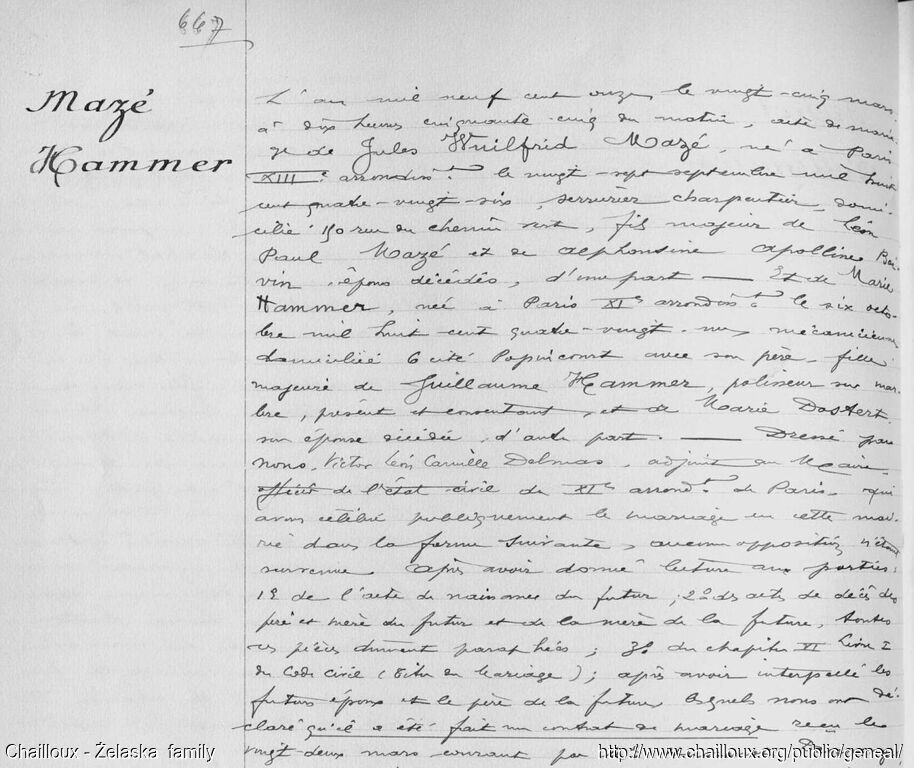 667
Mazé
Hammer
L'an mil neuf cent onze, le vingt-cinq mars
à dix heures cinquante cinq du matin, acte de maria-
ge de Jules Wuilfrid Mazé, né à Paris
XIIIe arrondist. le vingt-sept septembre mil huit
cent quatre-vingt-six, serrurier charpentier, domi-
cilié 150 rue du chemin vert, fils majeur de Léon
Paul Mazé et de Alphonsine Apolline Boi-
vin, époux décédés, d'une part — Et de Marie
Hammer, née à Paris XIe arrondist. le six octo-
bre mil huit cent quatre-vingt. mécanicienne
domiciliée 6 cité Popincourt avec son père. fille
majeure de Guillaume Hammer, polisseur sur mar-
bre, présent et consentant, et de Marie Dostert
son épouse décédée, d'autre part. — Dressé par
nous, Victor Léon Camille Delmas, adjoint au Maire,
officier de l'état civil du XIe arrondt. de Paris, qui
avons célébré publiquement le mariage en cette mai-
rie dans la forme suivante, aucune opposition n'étant
survenue. Après avoir donné lecture aux parties:
1º de l'acte de naissance du futur; 2º des actes de décès des
père et mère du futur et de la mère de la future, toutes
ces pièces dûment paraphées; 3º du chapitre VI Livre I
du Code civil (Titre du Mariage); après avoir interpellé les
futurs époux et le père de la future lesquels nous ont dé-
claré qu'il a été fait un contrat de mariage reçu le
vingt deux mars courant par
Chailloux - Żelaska family
http://www.chailloux.org/public/geneal/